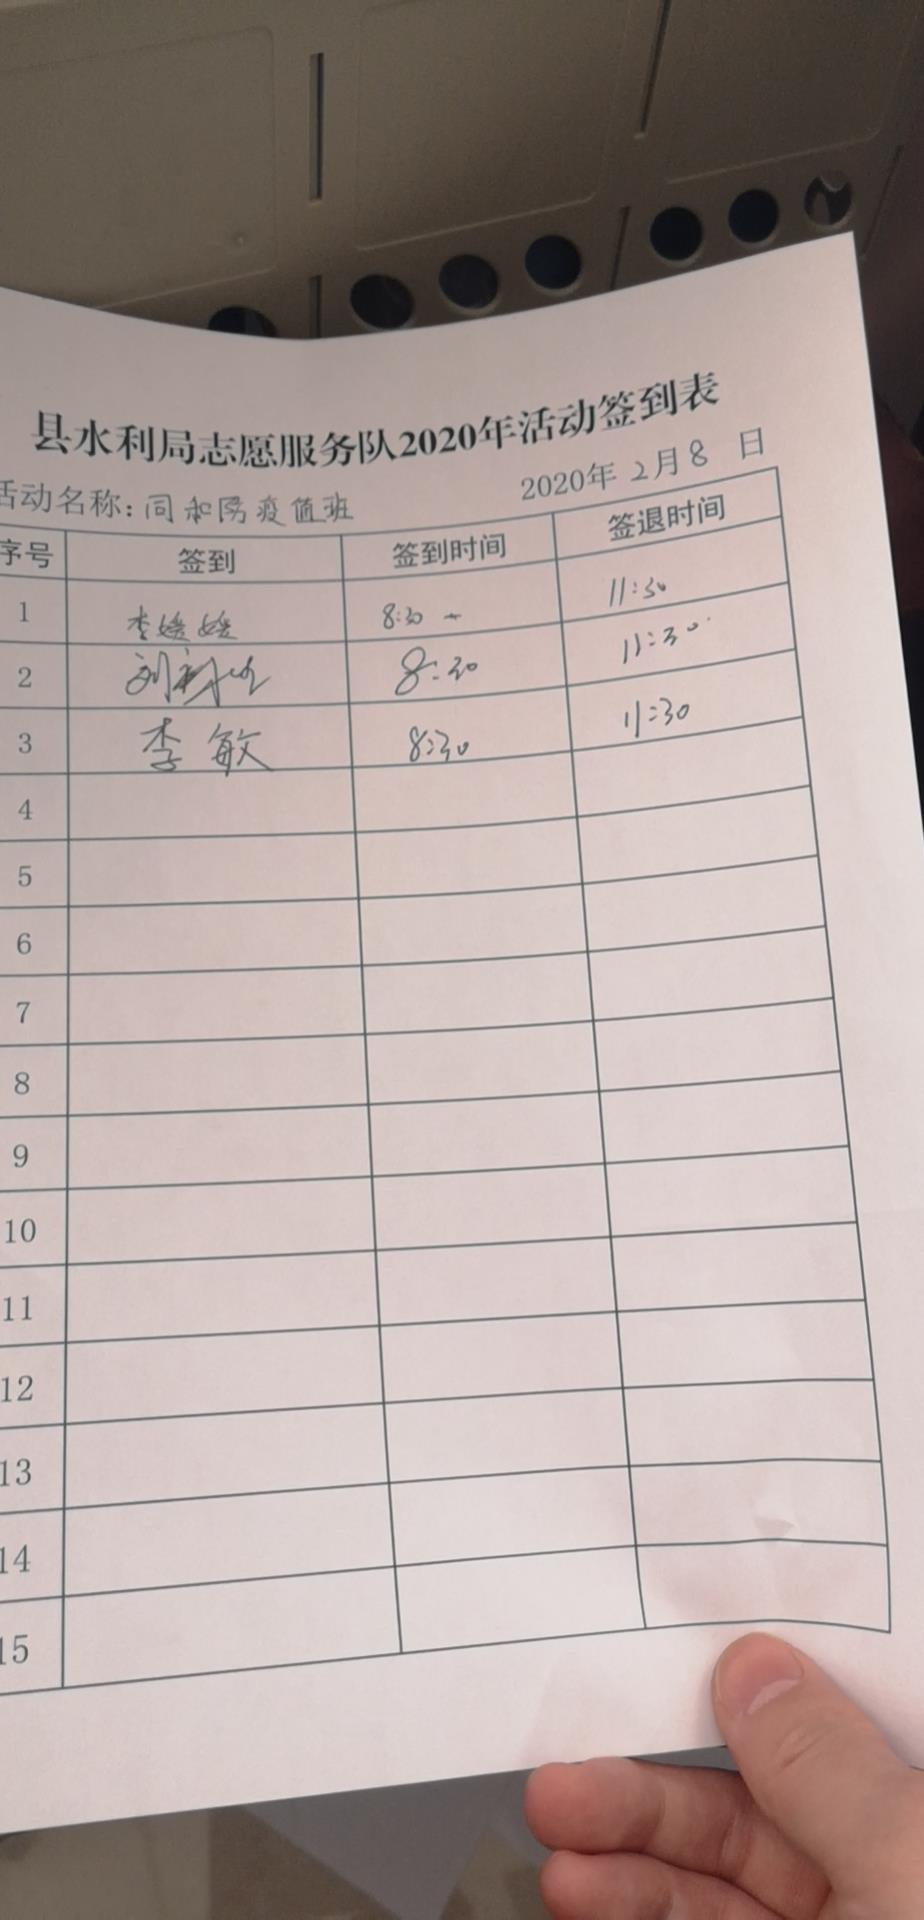 县水利局志愿服务队2020年活动签到表
活动名称：同和防疫值班 2020年 2月 8 日
序号 签到 签到时间 签退时间
1 李媛媛 8:30 11:30
2 刘 8:30 11:30
3 李敏 8:30 11:30
4
5
6
7
8
9
10
11
12
13
14
15